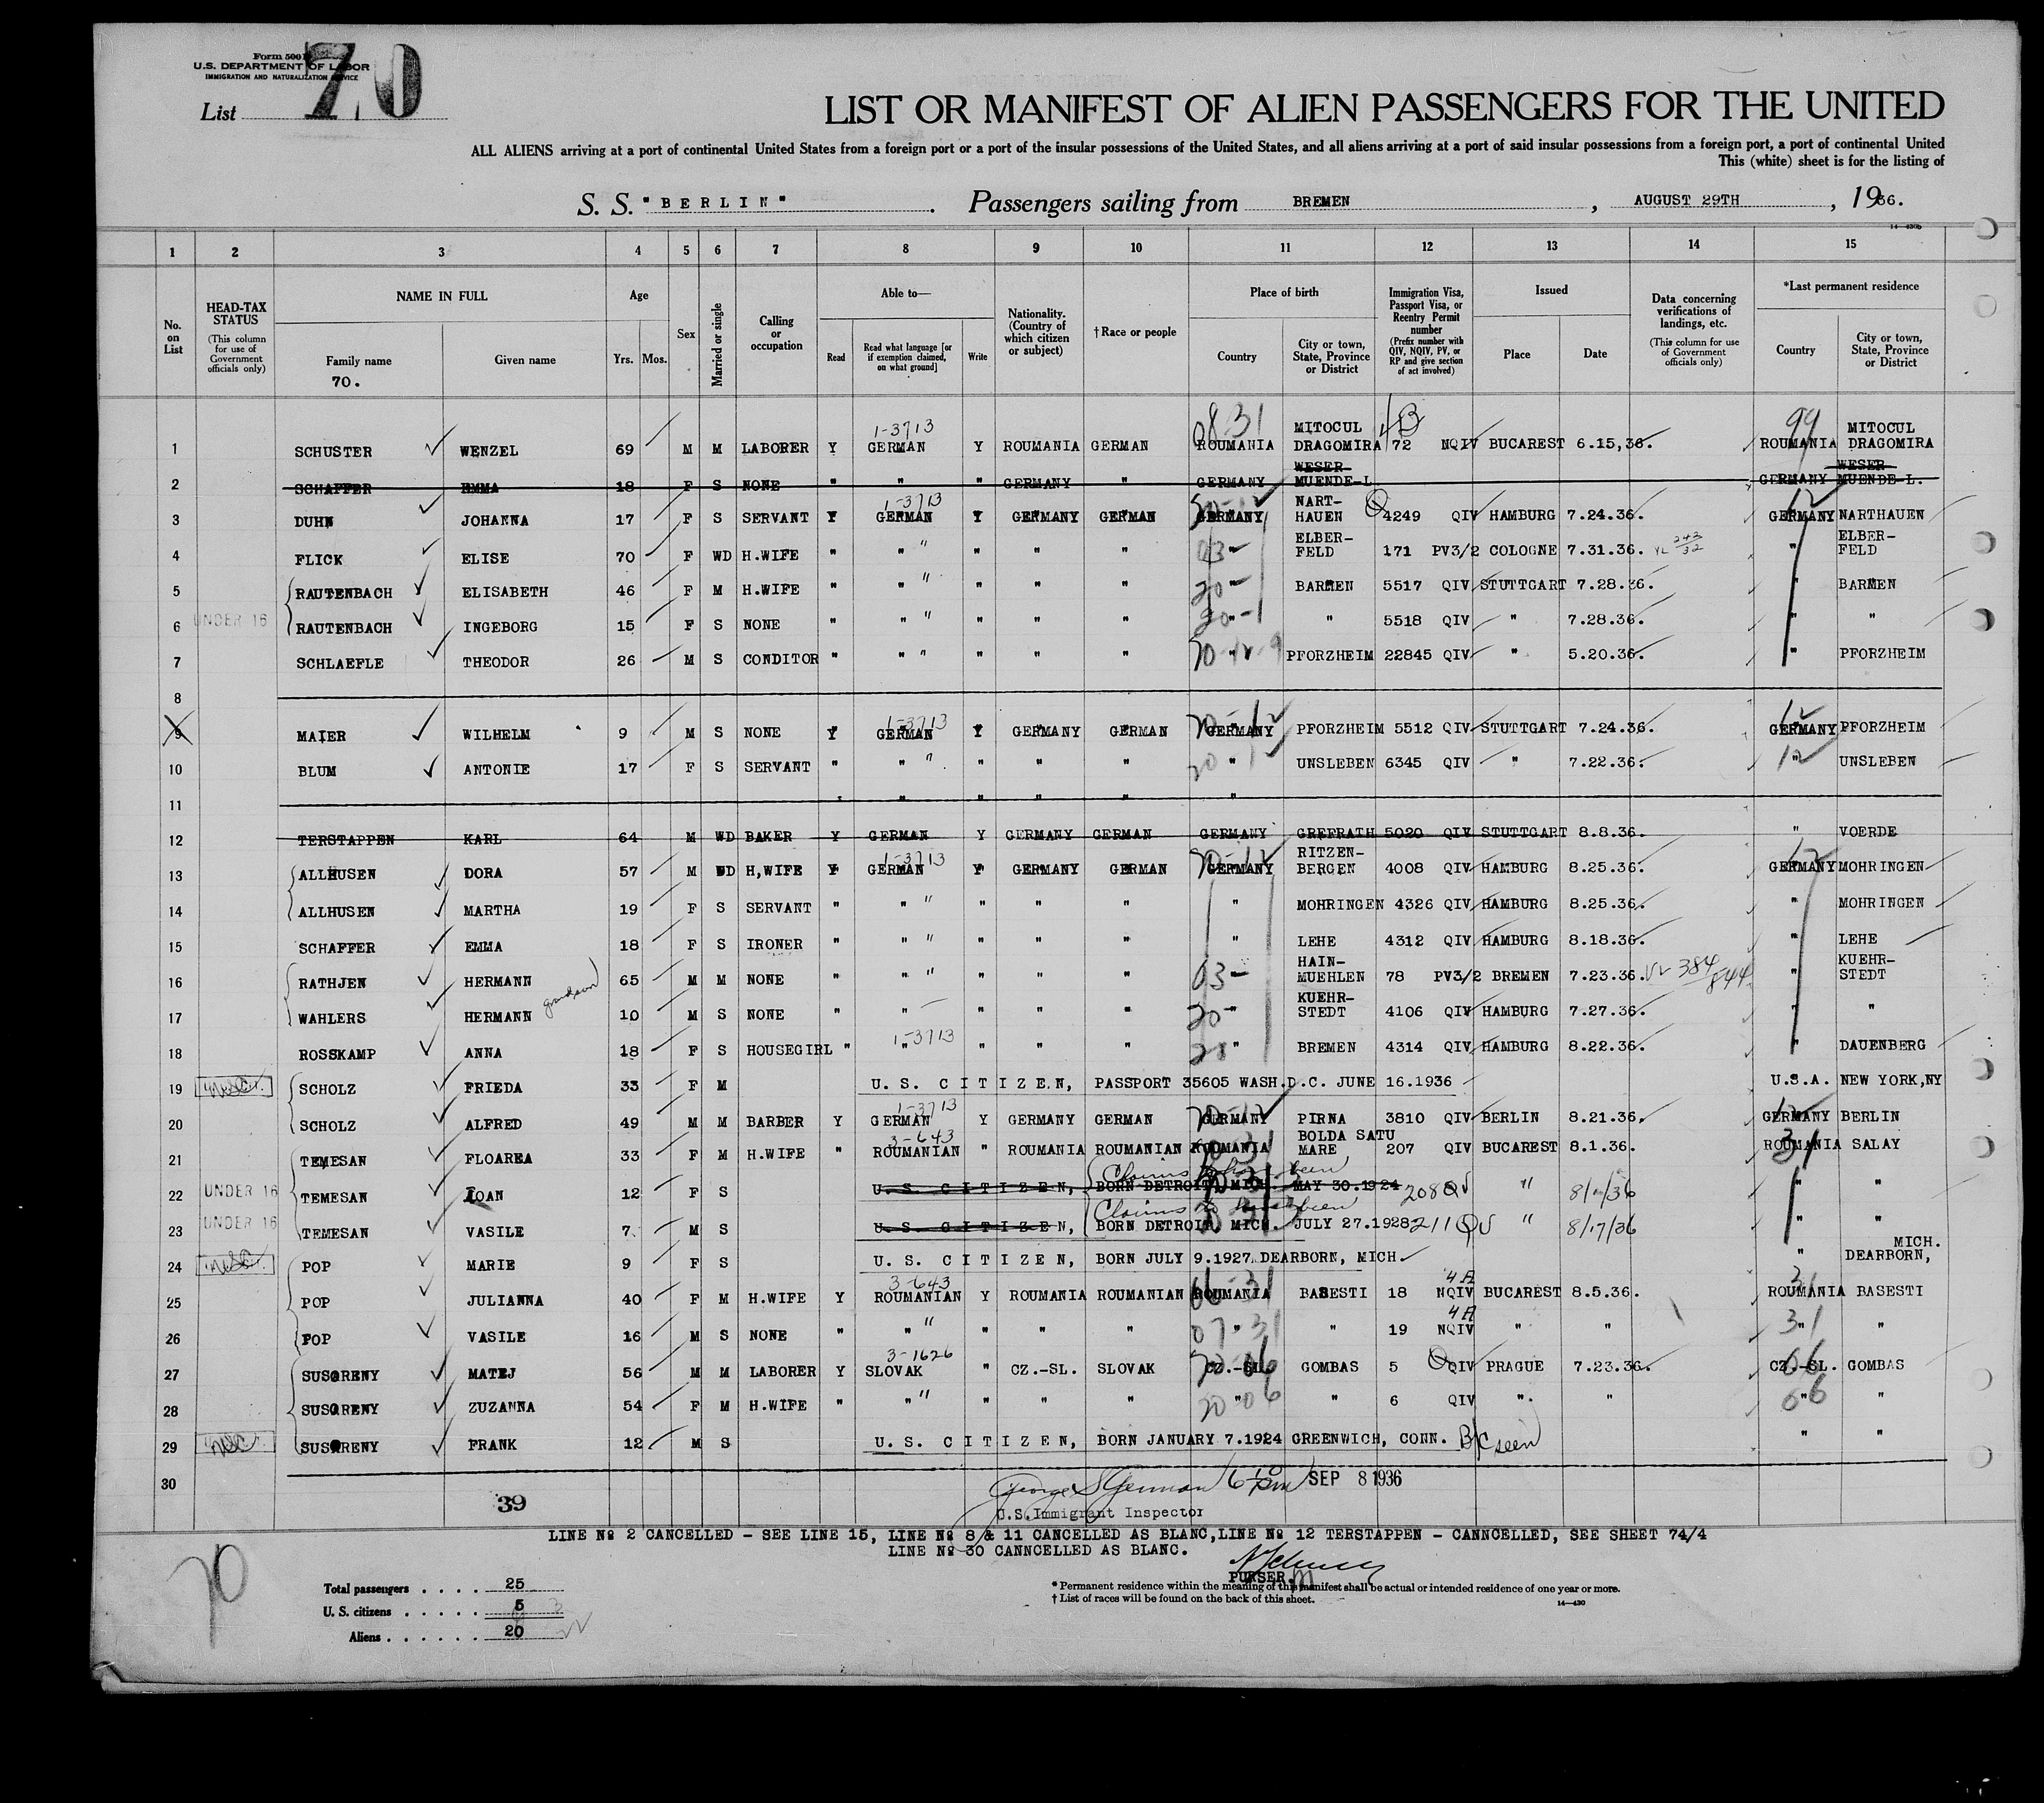 Form 500
U.S. DEPARTMENT OF LABOR
IMMIGRATION AND NATURALIZATION SERVICE
List 70
LIST OR MANIFEST OF ALIEN PASSENGERS FOR THE UNITED
ALL ALIENS arriving at a port of continental United States from a foreign port or a port of the insular possessions of the United States, and all aliens arriving at a port of said insular possessions from a foreign port, a port of continental United
This (white) sheet is for the listing of
S. S. "BERLIN". Passengers sailing from BREMEN, AUGUST 29TH, 1936.
1 2 3 4 5 6 7 8 9 10 11 12 13 14 15
No. on List
HEAD-TAX STATUS (This column for use of Government officials only)
NAME IN FULL
Family name Given name
70.
Age Yrs. Mos.
Sex
Married or single
Calling or occupation
Able to—
Read Read what language [or if exemption claimed, on what ground] Write
Nationality. (Country of which citizen or subject)
†Race or people
Place of birth
Country City or town, State, Province or District
Immigration Visa, Passport Visa, or Reentry Permit number (Prefix number with QIV, NQIV, PV, or RP and give section of act involved)
Issued Place Date
Data concerning verifications of landings, etc. (This column for use of Government officials only)
*Last permanent residence
Country City or town, State, Province or District
1 SCHUSTER WENZEL 69 M M LABORER Y GERMAN 1-3713 Y ROUMANIA GERMAN ROUMANIA MITOCUL DRAGOMIRA 72 NQIV BUCAREST 6.15,36. 99 ROUMANIA MITOCUL DRAGOMIRA
2 SCHAFFER EMMA 18 F S NONE " " " GERMANY " GERMANY WESER MUENDE-L. GERMANY WESER MUENDE-L.
3 DUHN JOHANNA 17 F S SERVANT Y GERMAN 1-3713 Y GERMANY GERMAN GERMANY NART-HAUEN 4249 QIV HAMBURG 7.24.36. 12 GERMANY NARTHAUEN
4 FLICK ELISE 70 F WD H.WIFE " " " " " 03- " ELBER-FELD 171 PV3/2 COLOGNE 7.31.36. VL 243/32 " ELBER-FELD
5 RAUTENBACH ELISABETH 46 F M H.WIFE " " " " " 20- " BARMEN 5517 QIV STUTTGART 7.28.36. " BARMEN
6 UNDER 16 RAUTENBACH INGEBORG 15 F S NONE " " " " " " " 5518 QIV " 7.28.36. " "
7 SCHLAEFLE THEODOR 26 M S CONDITOR " " " " " " PFORZHEIM 22845 QIV " 5.20.36. " PFORZHEIM
8
9 MAIER WILHELM 9 M S NONE Y GERMAN 1-3713 Y GERMANY GERMAN 20-12 GERMANY PFORZHEIM 5512 QIV STUTTGART 7.24.36. 12 GERMANY PFORZHEIM
10 BLUM ANTONIE 17 F S SERVANT " " " " " 20 12 " UNSLEBEN 6345 QIV " 7.22.36. 12 " UNSLEBEN
11 " " " " " "
12 TERSTAPPEN KARL 64 M WD BAKER Y GERMAN Y GERMANY GERMAN GERMANY GREFRATH 5020 QIV STUTTGART 8.8.36. " VOERDE
13 ALLHUSEN DORA 57 M WD H,WIFE Y GERMAN 1-3713 Y GERMANY GERMAN 20-12 GERMANY RITZEN-BERGEN 4008 QIV HAMBURG 8.25.36. 12 GERMANY MOHRINGEN
14 ALLHUSEN MARTHA 19 F S SERVANT " " " " " " MOHRINGEN 4326 QIV HAMBURG 8.25.36. " MOHRINGEN
15 SCHAFFER EMMA 18 F S IRONER " " " " " " LEHE 4312 QIV HAMBURG 8.18.36. " LEHE
16 RATHJEN HERMANN 65 M M NONE " " " " " 03- HAIN-MUEHLEN 78 PV3/2 BREMEN 7.23.36. VL 384/844 " KUEHR-STEDT
17 WAHLERS HERMANN grandson 10 M S NONE " " " " " 20- " KUEHR-STEDT 4106 QIV HAMBURG 7.27.36. " "
18 ROSSKAMP ANNA 18 F S HOUSEGIRL " " 1-3713 " " " 20 " BREMEN 4314 QIV HAMBURG 8.22.36. " DAUENBERG
19 SCHOLZ FRIEDA 33 F M U. S. CITIZEN, PASSPORT 35605 WASH.D.C. JUNE 16.1936 U.S.A. NEW YORK,NY
20 SCHOLZ ALFRED 49 M M BARBER Y GERMAN 1-3713 Y GERMANY GERMAN 20-12 GERMANY PIRNA 3810 QIV BERLIN 8.21.36. 12 GERMANY BERLIN
21 TEMESAN FLOAREA 33 F M H.WIFE " ROUMANIAN 3-643 " ROUMANIA ROUMANIAN ROUMANIA BOLDA SATU MARE 207 QIV BUCAREST 8.1.36. 31 ROUMANIA SALAY
22 UNDER 16 TEMESAN IOAN 12 F S U. S. CITIZEN, Claims to have been BORN DETROIT, MICH. MAY 30.1924 208 QV " " "
23 UNDER 16 TEMESAN VASILE 7 M S U. S. CITIZEN, Claims to have been BORN DETROIT, MICH. JULY 27.1928 211 QV " 8/17/36 " "
24 POP MARIE 9 F S U. S. CITIZEN, BORN JULY 9.1927 DEARBORN, MICH. " MICH. DEARBORN,
25 POP JULIANNA 40 F M H.WIFE Y ROUMANIAN 3-643 Y ROUMANIA ROUMANIAN 66-31 ROUMANIA BASESTI 18 4A NQIV BUCAREST 8.5.36. 31 ROUMANIA BASESTI
26 POP VASILE 16 M S NONE " " " " " 07-31 " " 19 4A NQIV " " 31 " "
27 SUSORENY MATEJ 56 M M LABORER Y SLOVAK 3-1626 " CZ.-SL. SLOVAK 20-06 CZ.-SL. GOMBAS 5 QIV PRAGUE 7.23.36. 06 CZ.-SL. GOMBAS
28 SUSORENY ZUZANNA 54 F M H.WIFE " " " " " 20 06 " " 6 QIV " " 06 " "
29 SUSORENY FRANK 12 M S U. S. CITIZEN, BORN JANUARY 7.1924 GREENWICH, CONN. B/C seen " "
30
39
SEP 8 1936
U.S.Immigrant Inspector
LINE № 2 CANCELLED - SEE LINE 15, LINE № 8 & 11 CANCELLED AS BLANC,LINE № 12 TERSTAPPEN - CANNCELLED, SEE SHEET 74/4
LINE № 30 CANNCELLED AS BLANC.
PURSER.
70
Total passengers . . . . 25
U. S. citizens . . . . . 5
Aliens . . . . . . 20
* Permanent residence within the meaning of this manifest shall be actual or intended residence of one year or more.
† List of races will be found on the back of this sheet.
14—430